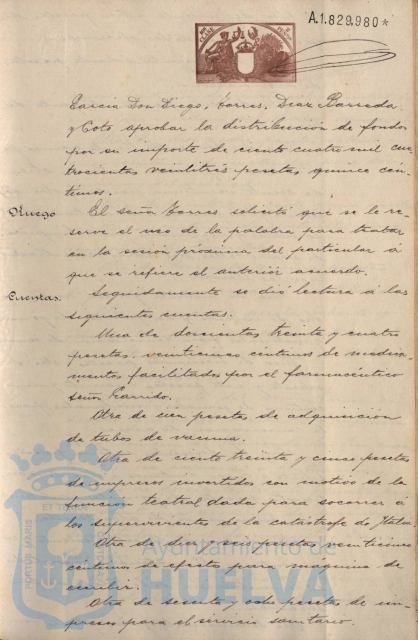 A.1.829,980*
Garcia Don Diego, Torres, Diaz Barreda
y Coto aprobar la distribución de fondos
por su importe de ciento cuatro mil cua-
trocientas veintitrés pesetas quince cén-
timos.
Ruego
El señor Torres solicitó que se le re-
serve el uso de la palabra para tratar
en la sesión próxima del particular á
que se refiere el anterior acuerdo.
Cuentas.
Seguidamente se dió lectura á las
siguientes cuentas.
Una de doscientas treinta y cuatro
pesetas veinticinco centimos de medica-
mentos facilitados por el farmacéutico
señor Garrido.
Otra de cien pesetas de adquisición
de tubos de vacuna.
Otra de ciento treinta y cinco pesetas
de impresos invertidos con motivo de la
función teatral dada para socorrer a
los supervivientes de la catástrofe de Italia.
Otra de diez y seis pesetas veinticinco
centimos de efectos para maquina de
escribir.
Otra de sesenta y ocho pesetas de im-
presos para el servicio sanitario.
PORTUS MARIS
Ayuntamiento de
HUELVA